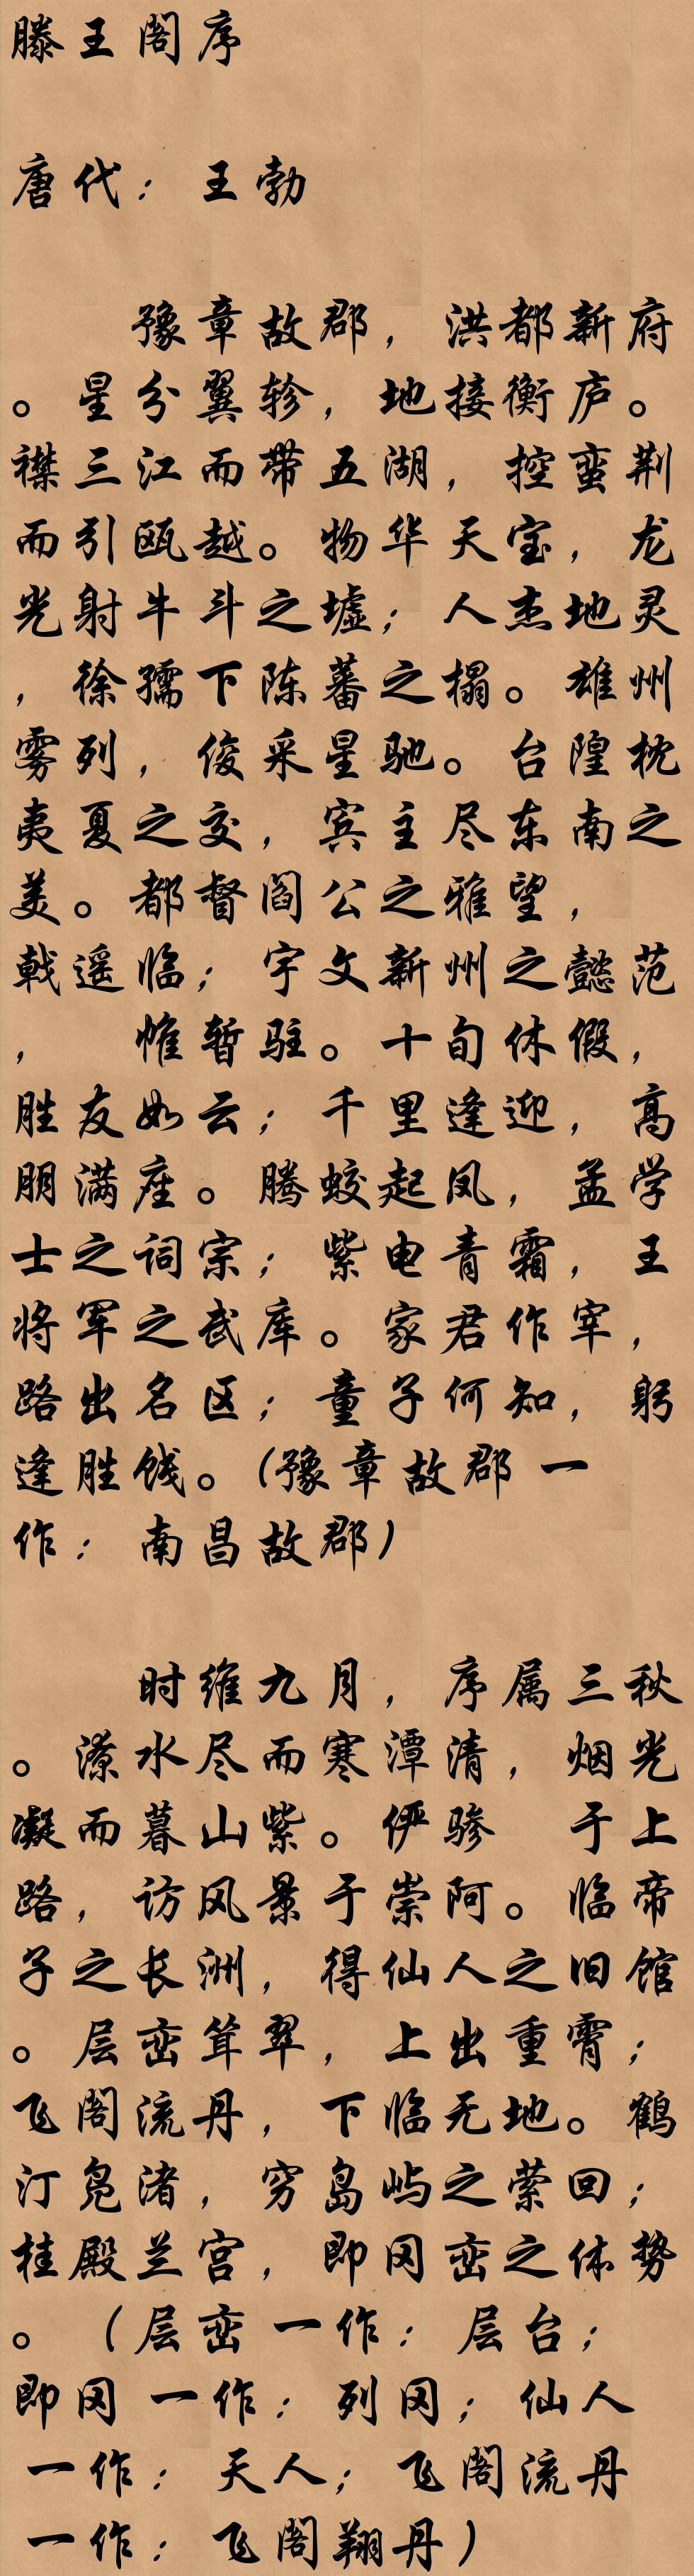 滕王阁序
唐代：王勃
豫章故郡，洪都新府
。星分翼轸，地接衡庐。
襟三江而带五湖，控蛮荆
而引瓯越。物华天宝，龙
光射牛斗之墟；人杰地灵
，徐孺下陈蕃之榻。雄州
雾列，俊采星驰。台隍枕
夷夏之交，宾主尽东南之
美。都督阎公之雅望，
戟遥临；宇文新州之懿范
，　帷暂驻。十旬休假，
胜友如云；千里逢迎，高
朋满座。腾蛟起凤，孟学
士之词宗；紫电青霜，王
将军之武库。家君作宰，
路出名区；童子何知，躬
逢胜饯。(豫章故郡 一
作：南昌故郡)
时维九月，序属三秋
。潦水尽而寒潭清，烟光
凝而暮山紫。俨骖　于上
路，访风景于崇阿。临帝
子之长洲，得仙人之旧馆
。层峦耸翠，上出重霄；
飞阁流丹，下临无地。鹤
汀凫渚，穷岛屿之萦回；
桂殿兰宫，即冈峦之体势
。（层峦 一作：层台；
即冈 一作：列冈；仙人
一作：天人；飞阁流丹
一作：飞阁翔丹）